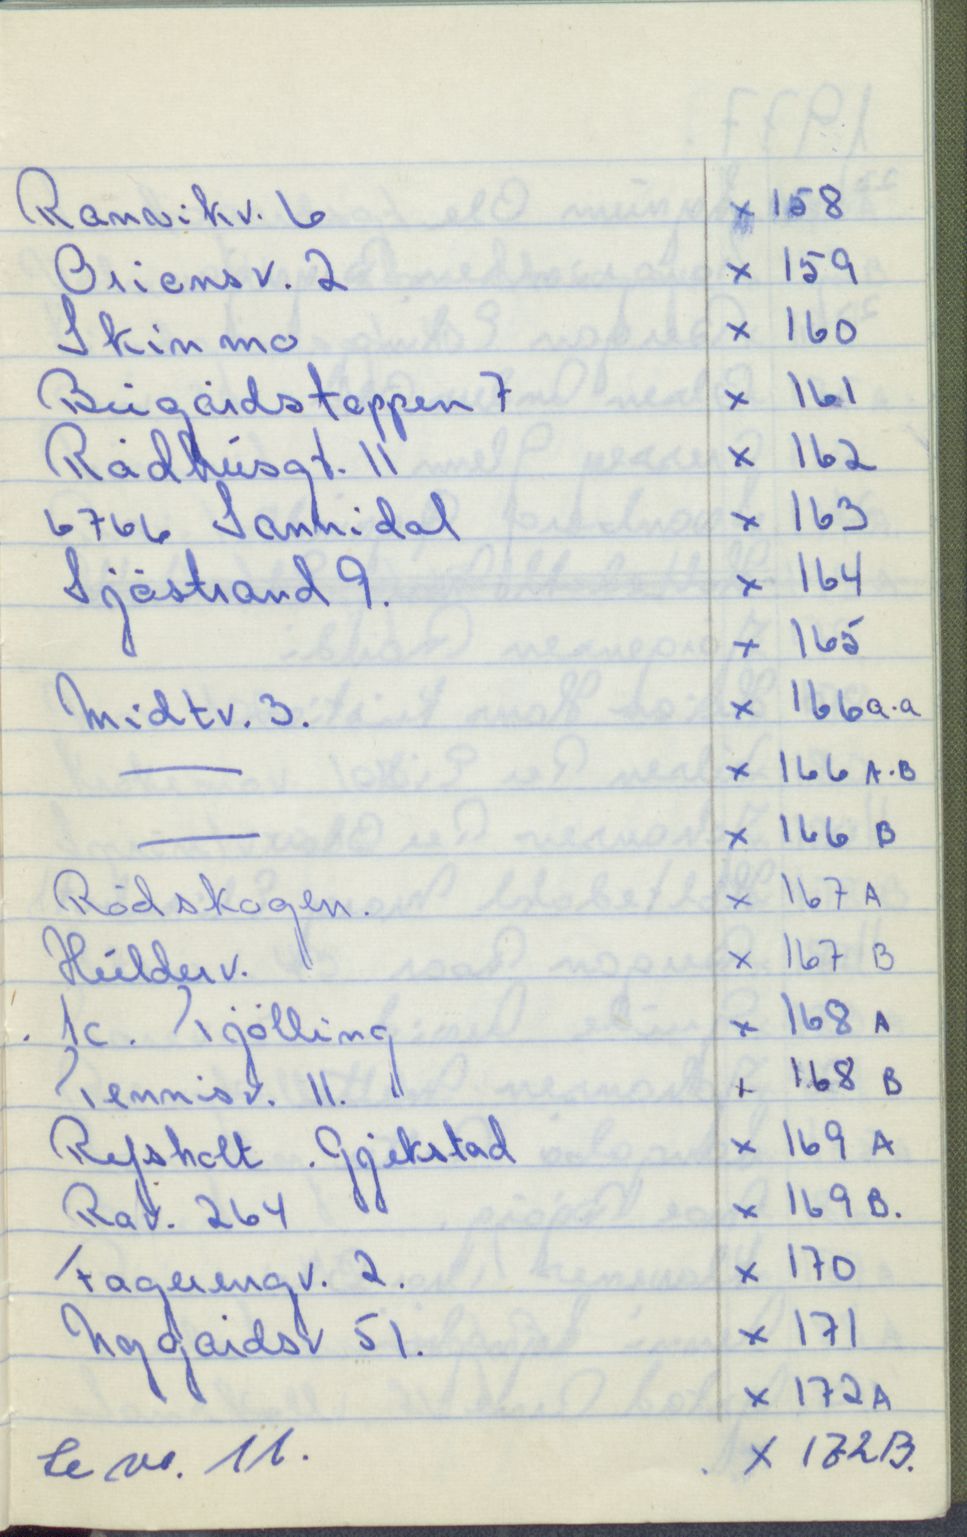 Ranvikv. 6 x 158
Oriensv. 2 x 159
Skinmo x 160
Bügårdstoppen 7 x 161
Rådhúsgt. 11 x 162
6766 Sannidal x 163
Sjöstrand 9. x 164
x 165
Midtv. 3. x 166 a.a
— x 166 A.B
— x 166 B
Rødskogen. x 167 A
Húlderv. x 167 B
1c. Tjølling x 168 A
Tennisv. 11. x 168 B
Refsholt. Gjekstad x 169 A
Rav. 264 x 169 B.
Fagerengv. 2. x 170
Nygårdsv 51. x 171
x 172 A
11. x 172B.